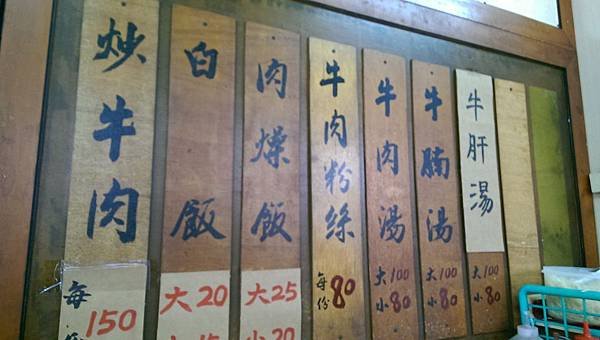 炒牛肉
每份150
白飯
大20
小15
肉燥飯
大25
小20
牛肉粉絲
每份80
牛肉湯
大100
小80
牛腩湯
大100
小80
牛肝湯
大100
小80